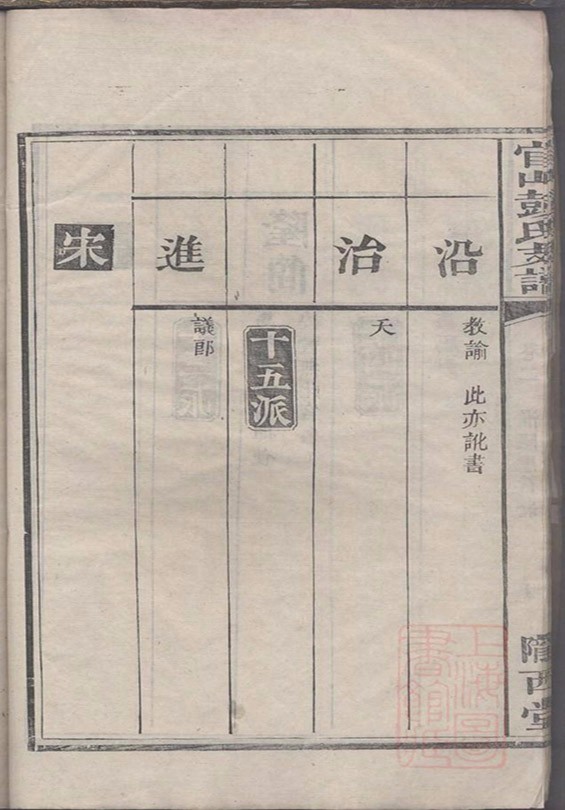 彭氏支譜
隴西堂
沿
教諭 此亦訛書
治
夭
十五派
進
議郎
宋
上海圖書館藏